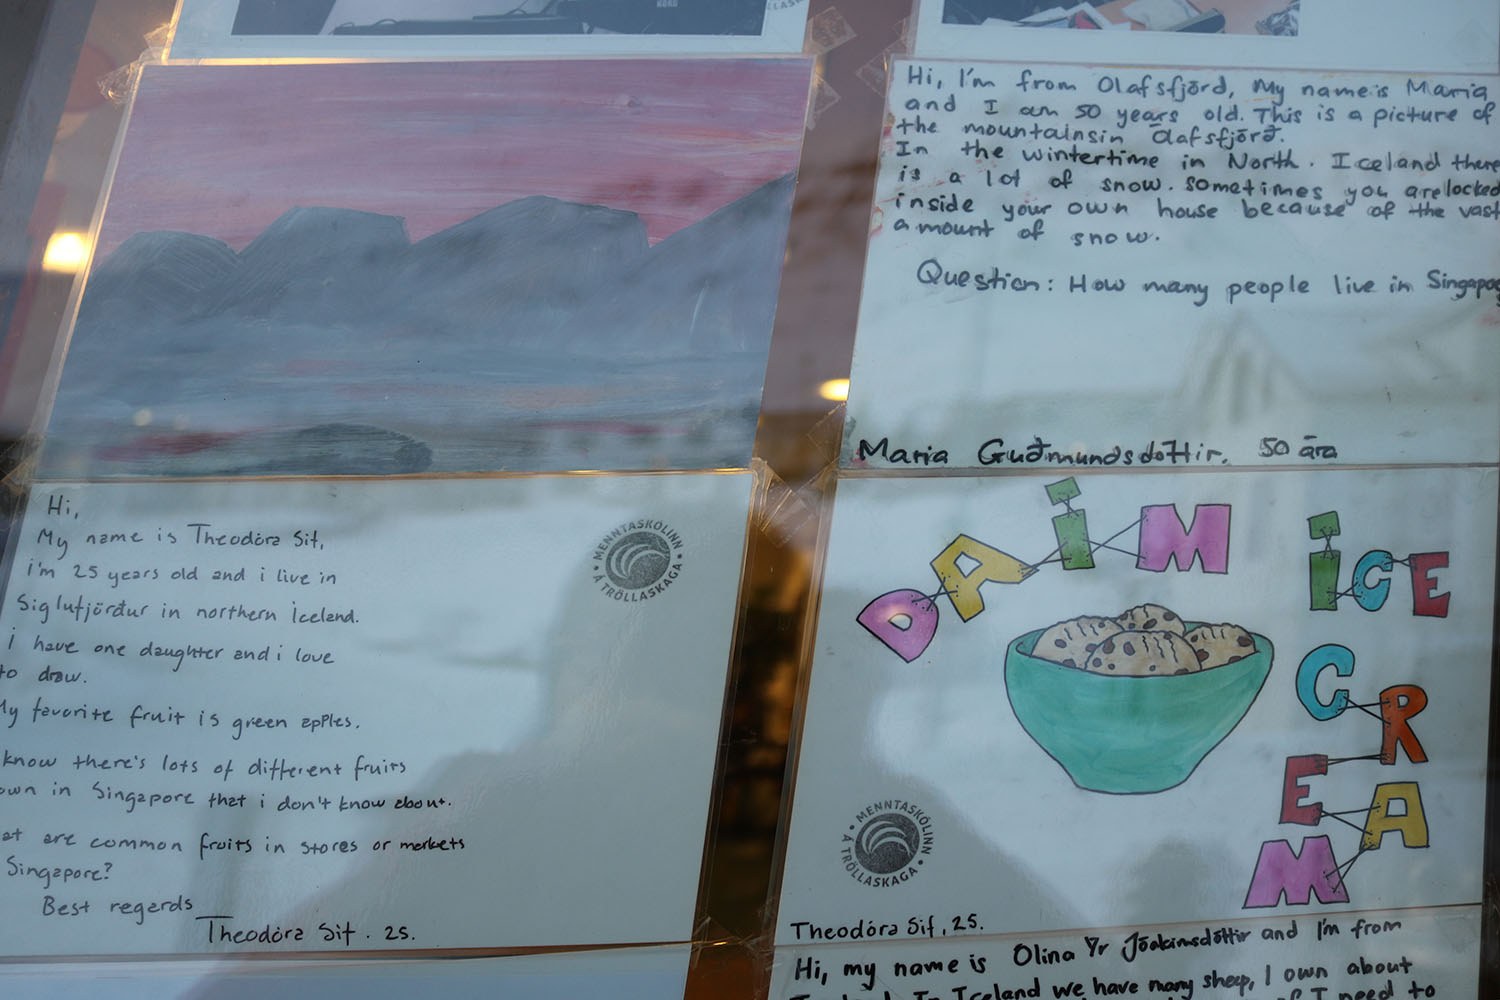 KORG
Hi, I'm from Olafsfjörd, My name is Maria
and I am 50 years old. This is a picture of
the mountainsin Ólafsfjörð.
In the wintertime in North. Iceland there
is a lot of snow. sometimes you are locked
inside your own house because of the vast
amount of snow.
Question: How many people live in Singapo
Maria Guðmundsdóttir. 50 ára
Hi,
My name is Theodóra Sif,
i'm 25 years old and i live in
Siglufjörður in northern iceland.
i have one daughter and i love
to draw.
My favorite fruit is green apples.
know there's lots of different fruits
own in Singapore that i don't know about.
at are common fruits in stores or markets
Singapore?
Best regards
Theodóra Sif. 25.
MENNTASKÓLINN
Á TRÖLLASKAGA
DAIM ICE
CREAM
MENNTASKÓLINN
Á TRÖLLASKAGA
Theodóra Sif, 25.
Hi, my name is Olina Ýr Jóakimsdóttir and I'm from
In Iceland we have many sheep, I own about
I need to